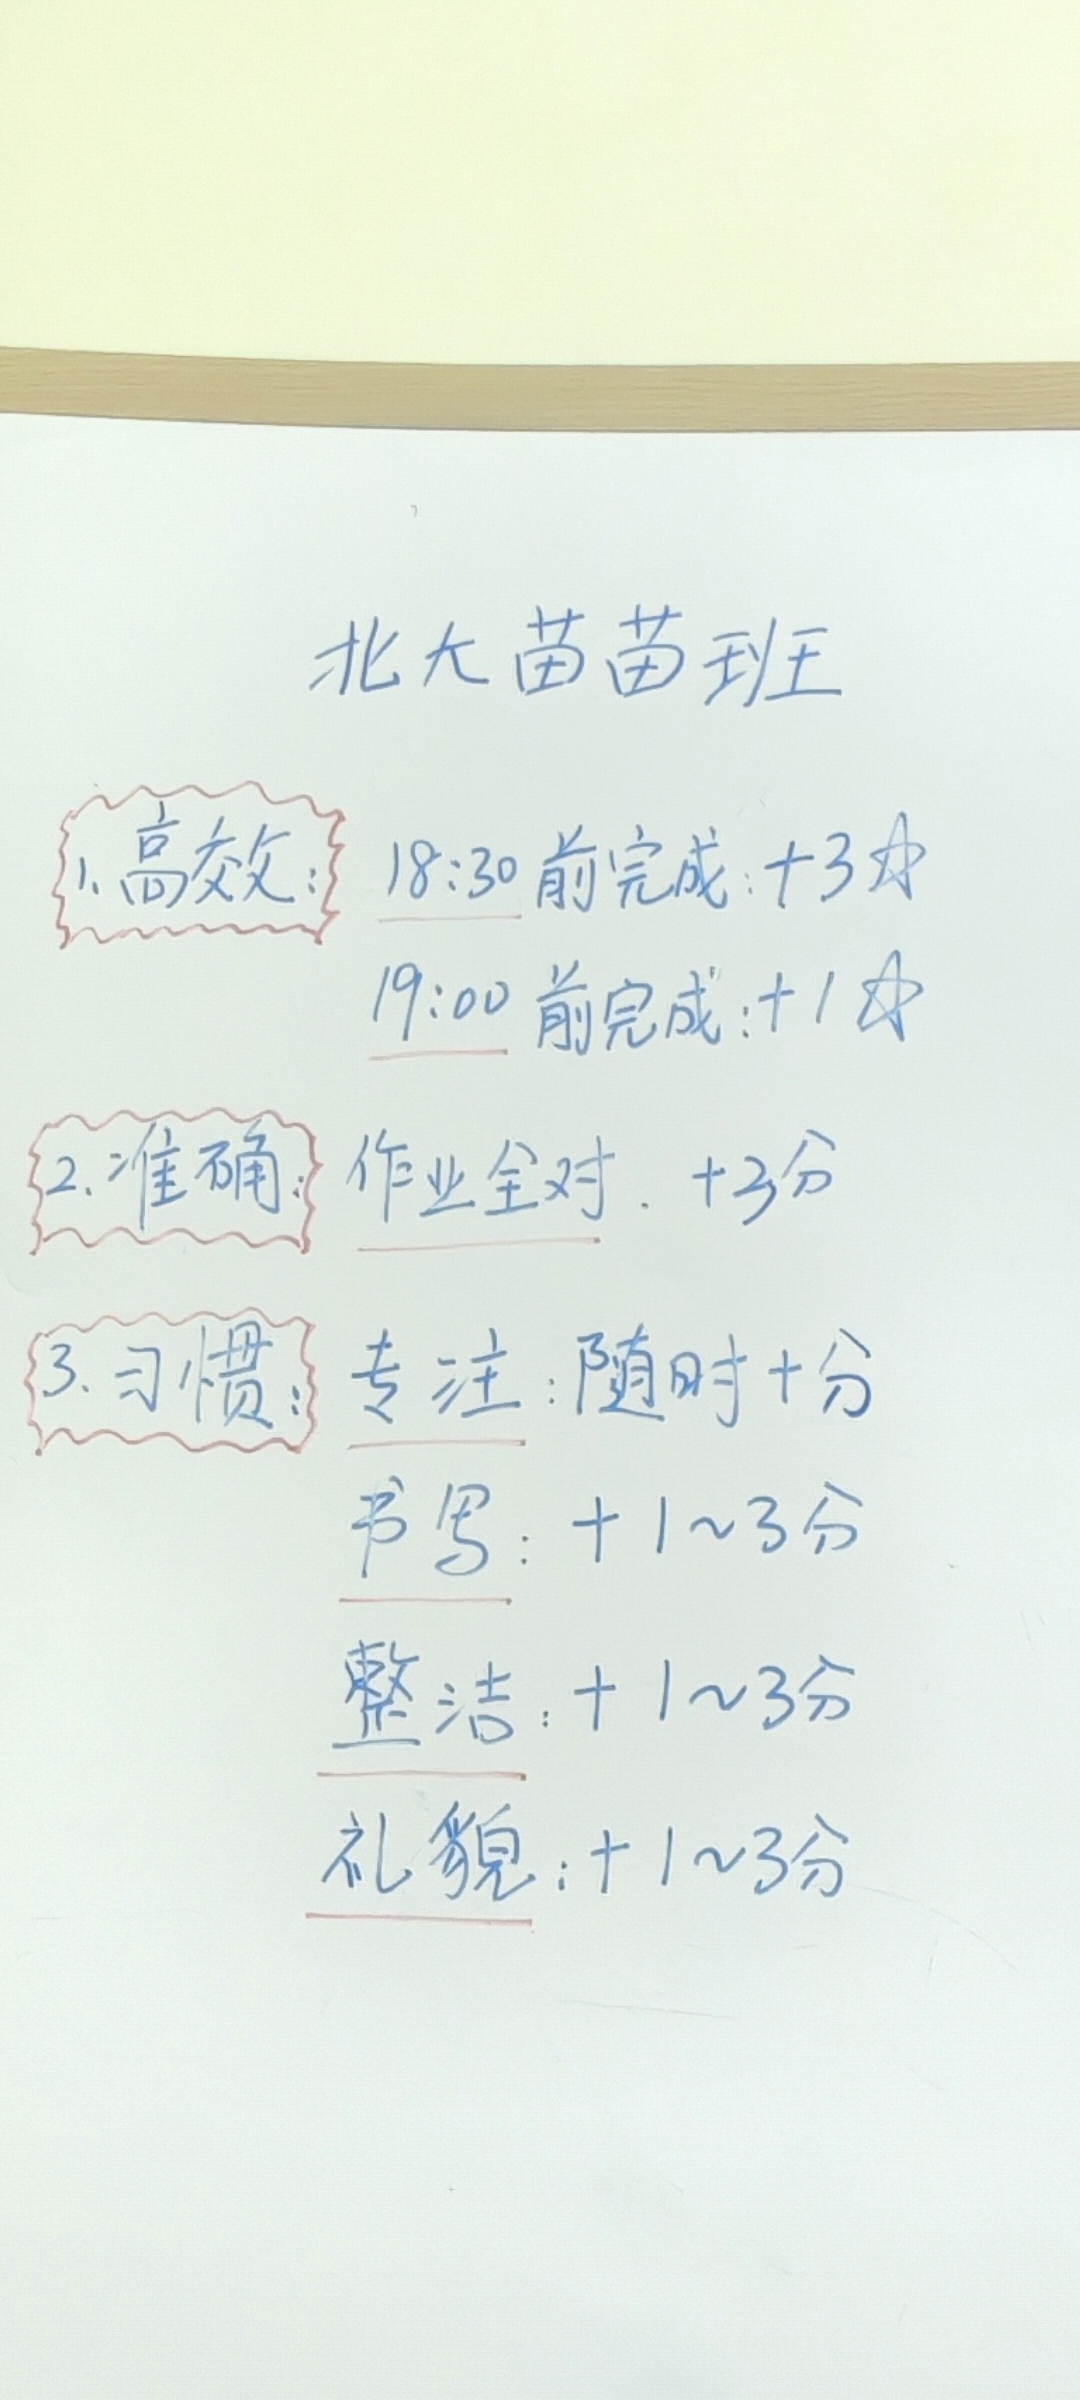 北大苗苗班
1.高效: 18:30前完成:+3☆
19:00前完成:+1☆
2.准确: 作业全对. +3分
3.习惯: 专注:随时+分
书写:+1~3分
整洁:+1~3分
礼貌:+1~3分